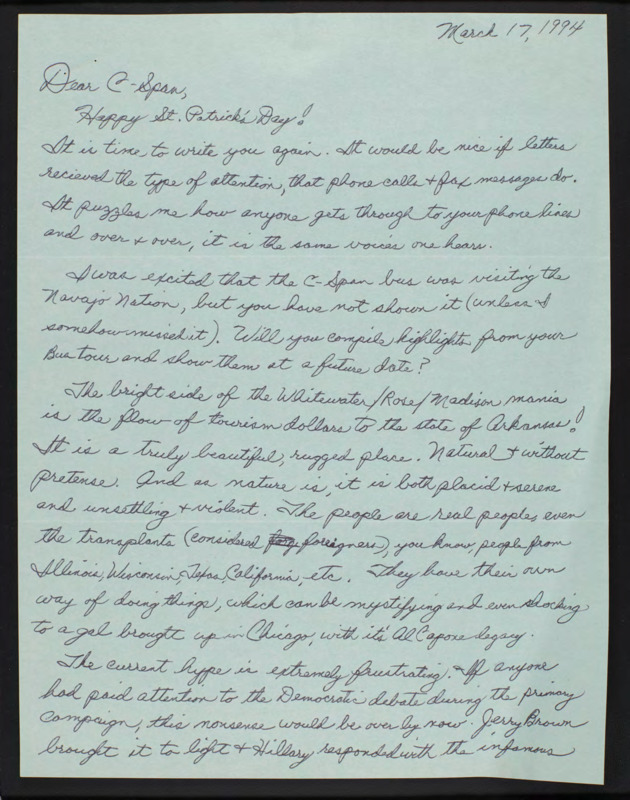 March 17, 1994
Dear C-Span,
Happy St. Patrick's Day!
It is time to write you again. It would be nice if letters
recieved the type of attention, that phone calls & fax messages do.
It puzzles me how anyone gets through to your phone lines
and over & over, it is the same voices one hears.
I was excited that the C-Span bus was visiting the
Navajo Nation, but you have not shown it (unless I
somehow missed it). Will you compile highlights from your
Bus tour and show them at a future date?
The bright side of the Whitewater/Rose/Madison mania
is the flow of tourism dollars to the state of Arkansas!
It is a truly beautiful, rugged place. Natural & without
pretense. And as nature is, it is both placid & serene
and unsettling & violent. The people are real people, even
the transplants (considered foreigners), you know, people from
Illinois, Wisconsin, Texas, California, etc. They have their own
way of doing things, which can be mystifying and even shocking
to a gal brought up in Chicago, with it's Al Capone legacy.
The current hype is extremely frustrating. If anyone
had paid attention to the Democratic debate during the primary
campaign, this nonsense would be over by now. Jerry Brown
brought it to light & Hillary responded with the infamous